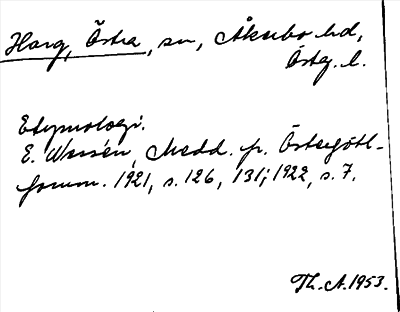 Harg, Östra, sn, Åkerbo hd,
Östg. l.
Etymologi.
E. Wessén, Medd. fr. Östergötl-
fornm. 1921, s. 126, 131; 1922, s. 7.
Th. A. 1953.